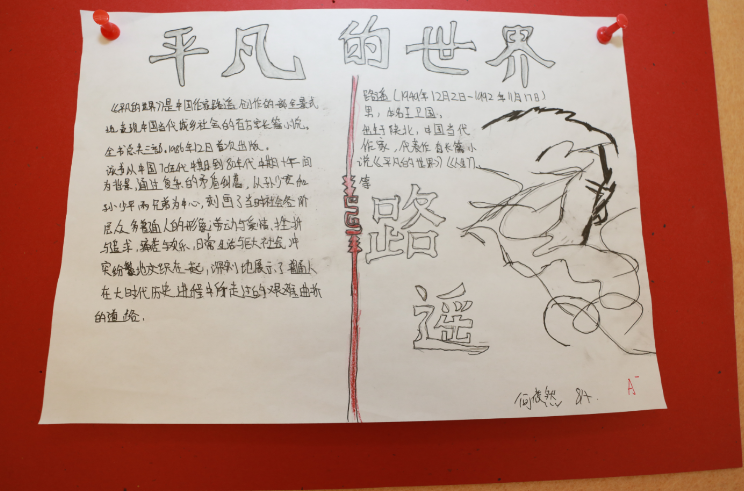 平凡的世界
《平凡的世界》是中国作家路遥创作的一部全景式
地表现中国当代城乡社会的百万字长篇小说。
全书共三部。1986年12月首次出版。
该书以中国70年代中期到80年代中期十年间
为背景,通过复杂的矛盾纠葛,以孙少安和
孙少平两兄弟为中心,刻画了当时社会各阶
层众多普通人的形象;劳动与爱情、挫折
与追求、痛苦与欢乐、日常生活与巨大社会冲
突纷繁地交织在一起,深刻地展示了普通人
在大时代历史进程中所走过的艰难曲折
的道路。
路遥(1949年12月2日-1992年11月17日)
男,本名王卫国。
出生于陕北,中国当代
作家,代表作有长篇小
说《平凡的世界》《人生》
等
路
遥
然 84.
A-